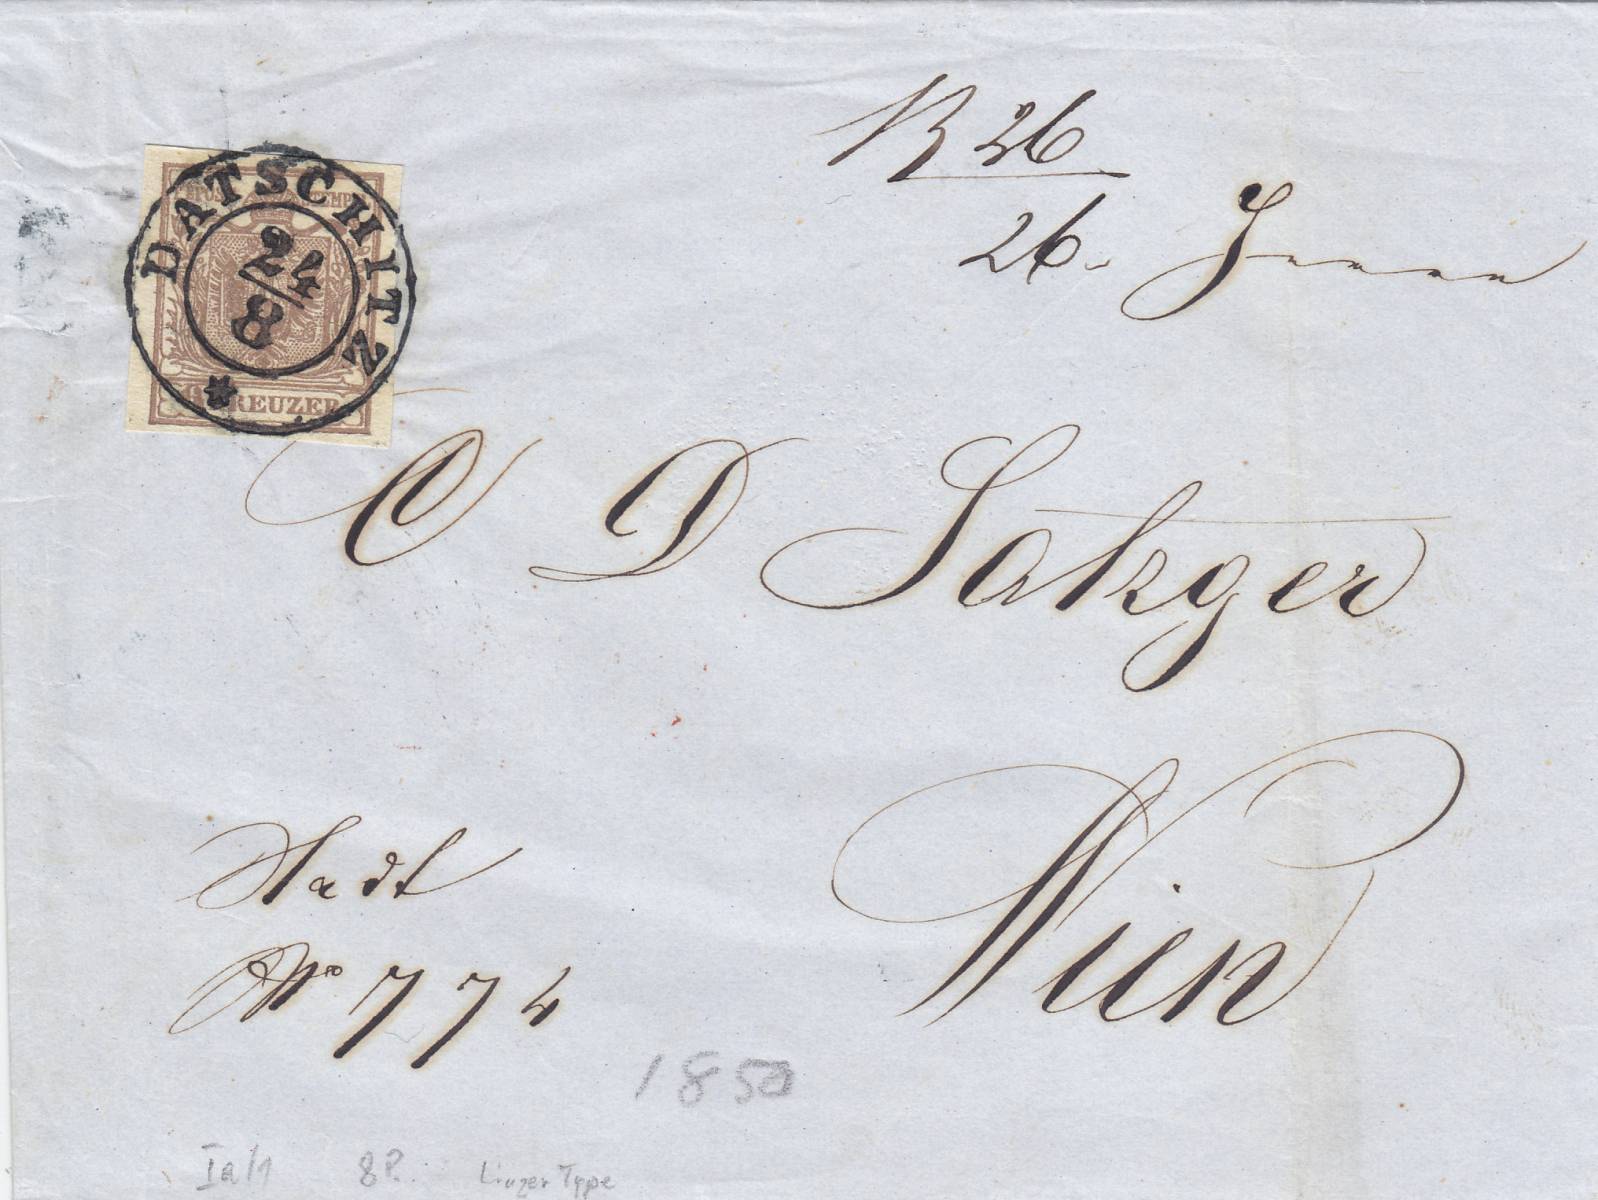 B 26
26.
DATSCHITZ
24/8
KREUZER
C D Sakger
Wien
Stadt
No 774
1850
Ia/1 8P. Linzer Type